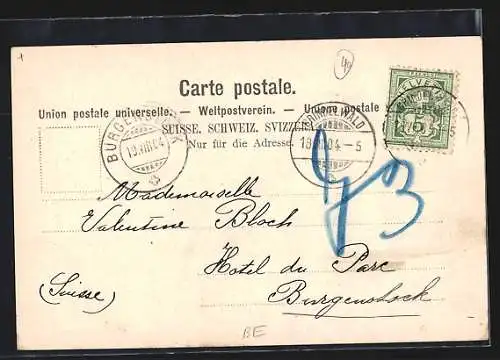 Carte postale.
Union postale universelle. — Weltpostverein. — Unione postale
SUISSE. SCHWEIZ. SVIZZERA
Nur für die Adresse.
HELVETIA
5
GRINDELWALD
18.VIII.04-5
19.VIII.04
Mademoiselle
Valentine Bloch
Hotel du Parc
(Suisse)
Burgenstock
BE